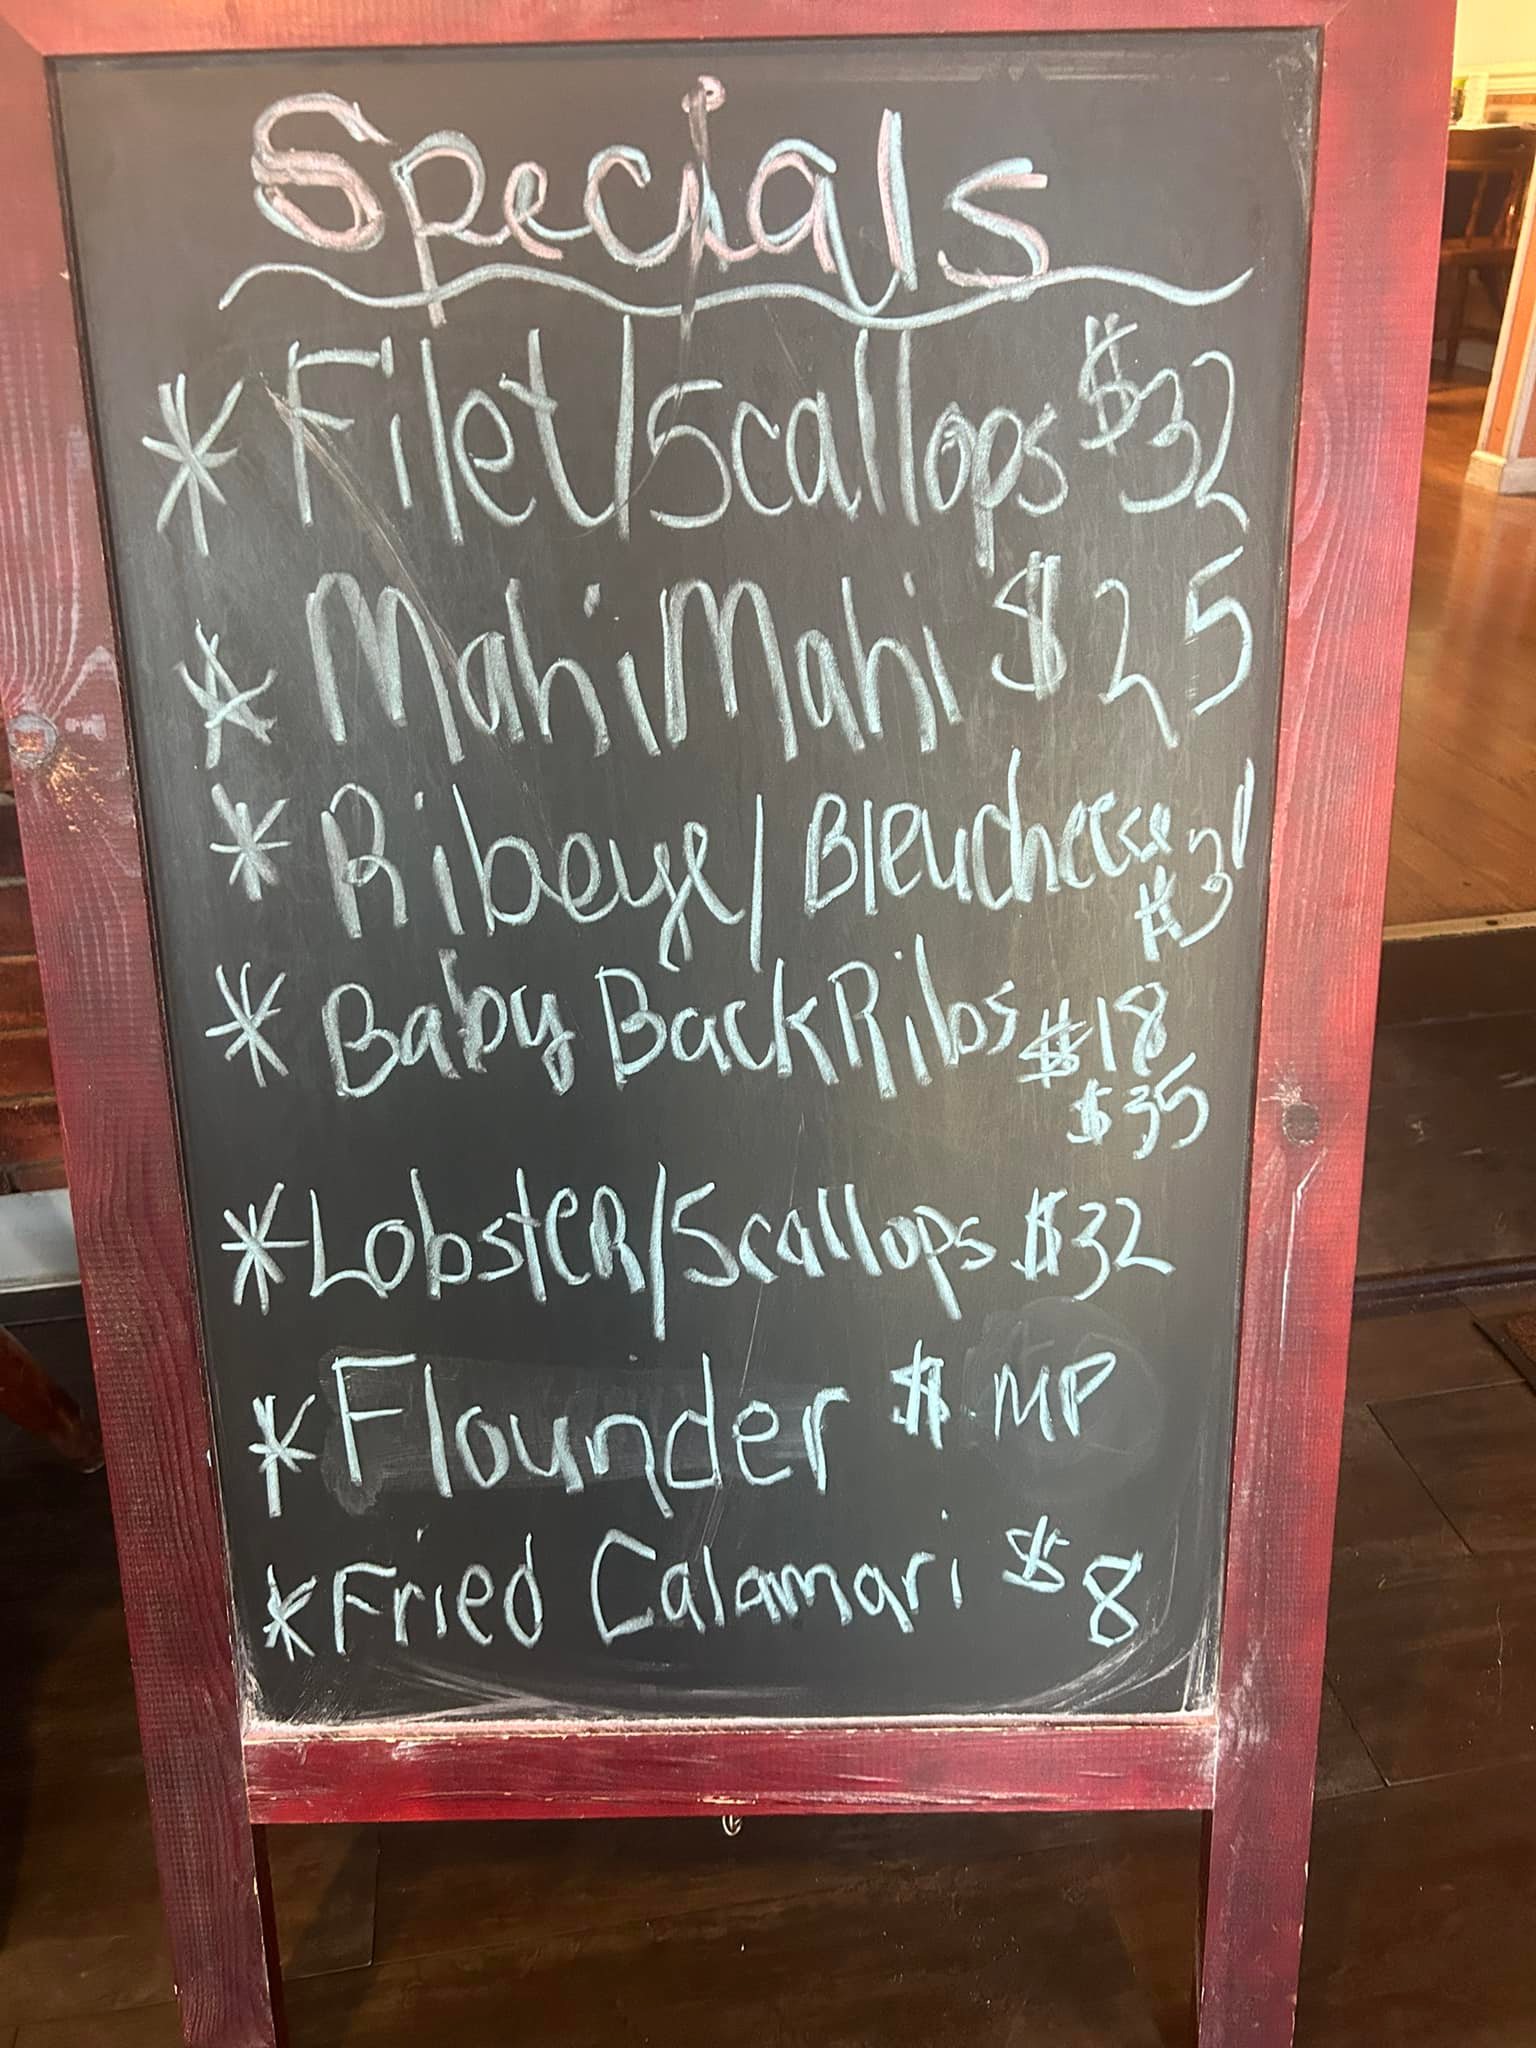 Specials
* Filet/Scallops $32
* Mahi Mahi $25
* Ribeye/Bleucheese
$31
* Baby Back Ribs $18
$35
* Lobster/Scallops $32
* Flounder $ MP
* Fried Calamari $8